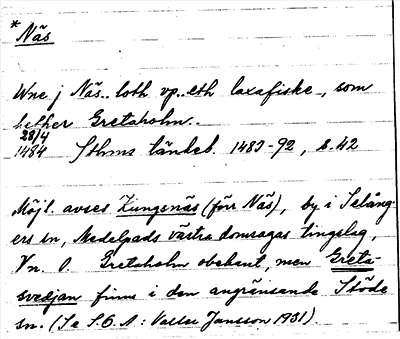 * Näs
Wne j Näs.. loth vp.. eth laxafiske, som
hether Gretaholm..
28/4
1484 Sthms tänkeb. 1483-92, s. 42
Möjl. avses Kungsnäs (förr Näs), by i Selång-
ers sn, Medelpads västra domsagas tingslag,
Vn. l. Gretaholm obekant, men Greta-
svedjan finns i den angränsande Stöde
sn. (Se S.O.A: Valter Jansson 1931).